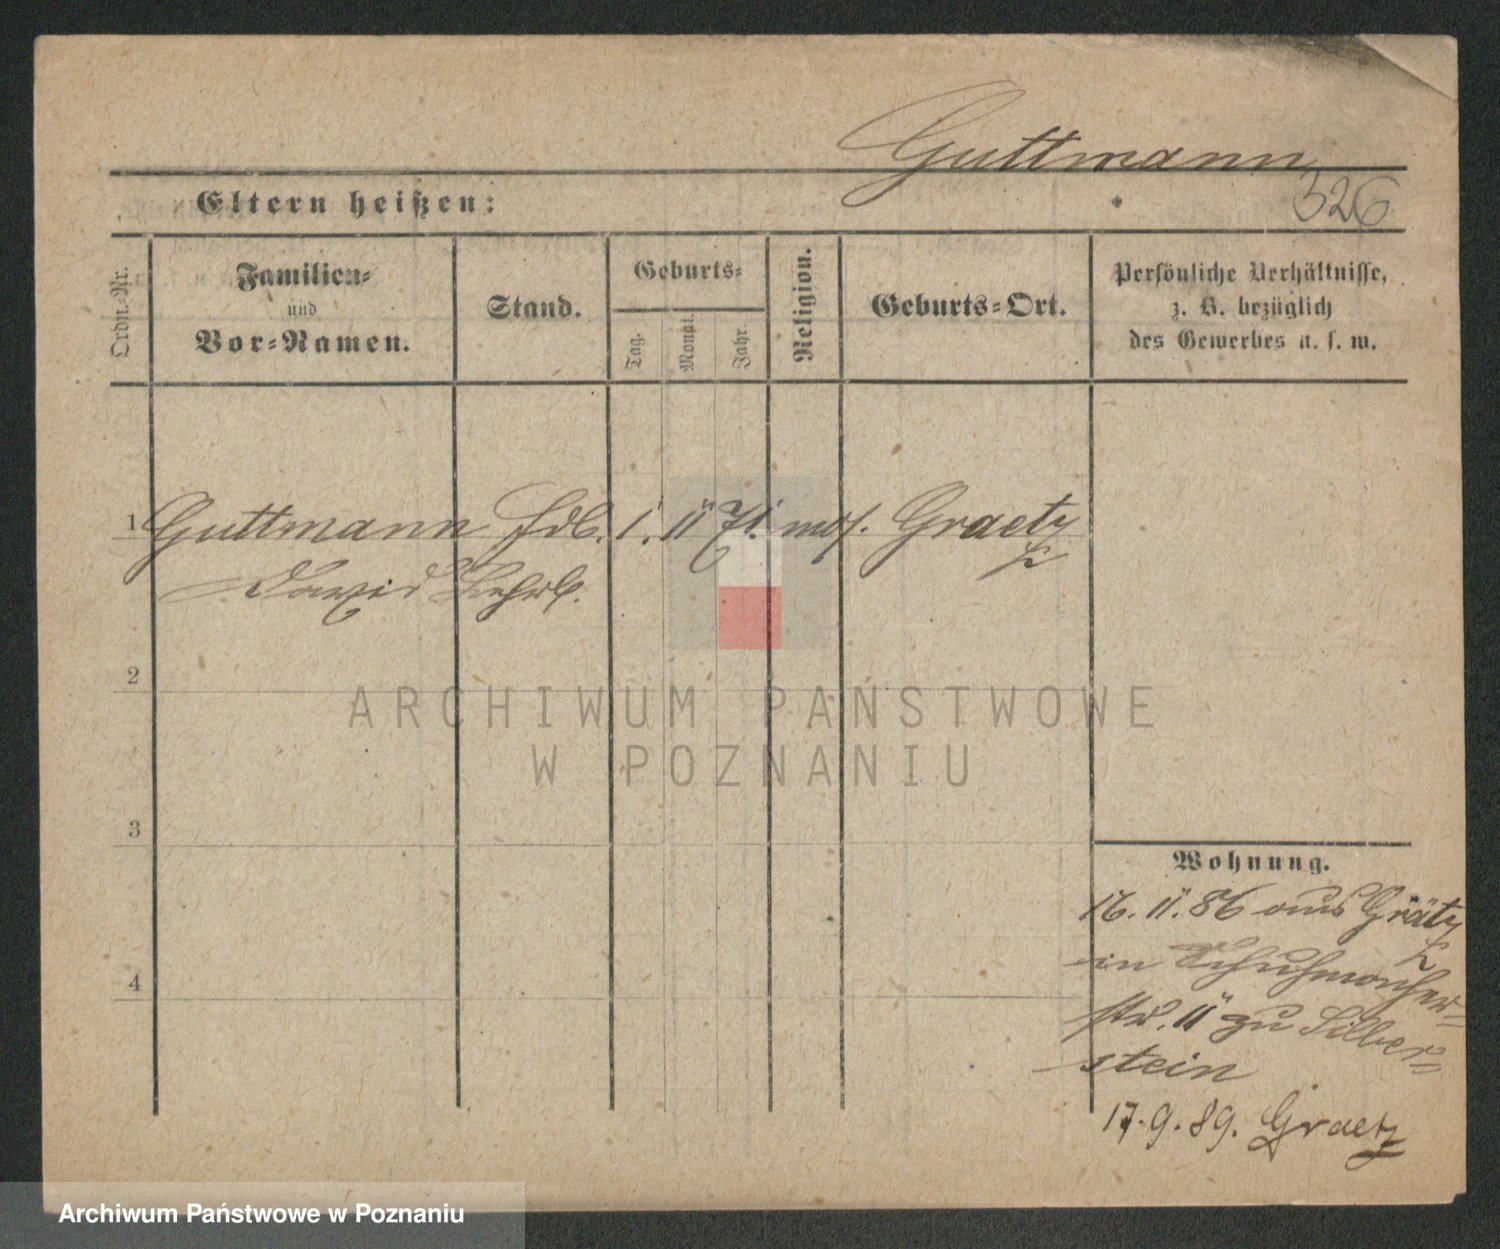 Guttmann
326
Eltern heißen:
Ordn.-Nr.
Familien-
und
Vor-Namen.
Stand.
Geburts-
Tag.
Monat.
Jahr.
Religion.
Geburts-Ort.
Persönliche Verhältnisse,
z. B. bezüglich
des Gewerbes u. s. w.
1 Guttmann led. 1. 11 71. mos. Graetz
David Lehrl.
2
ARCHIWUM PAŃSTWOWE
W POZNANIU
3
Wohnung.
16. 11. 86 aus Grätz
in Schuhmacher-
str. 11 zu Silber-
stein
4
17. 9. 89. Graetz
Archiwum Państwowe w Poznaniu